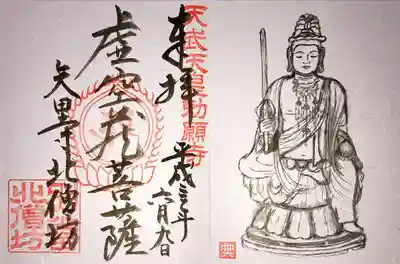 天武天皇勅願寺
奉拝
平成三十年
六月九日
虚空蔵菩薩
矢田寺北僧坊
北僧坊